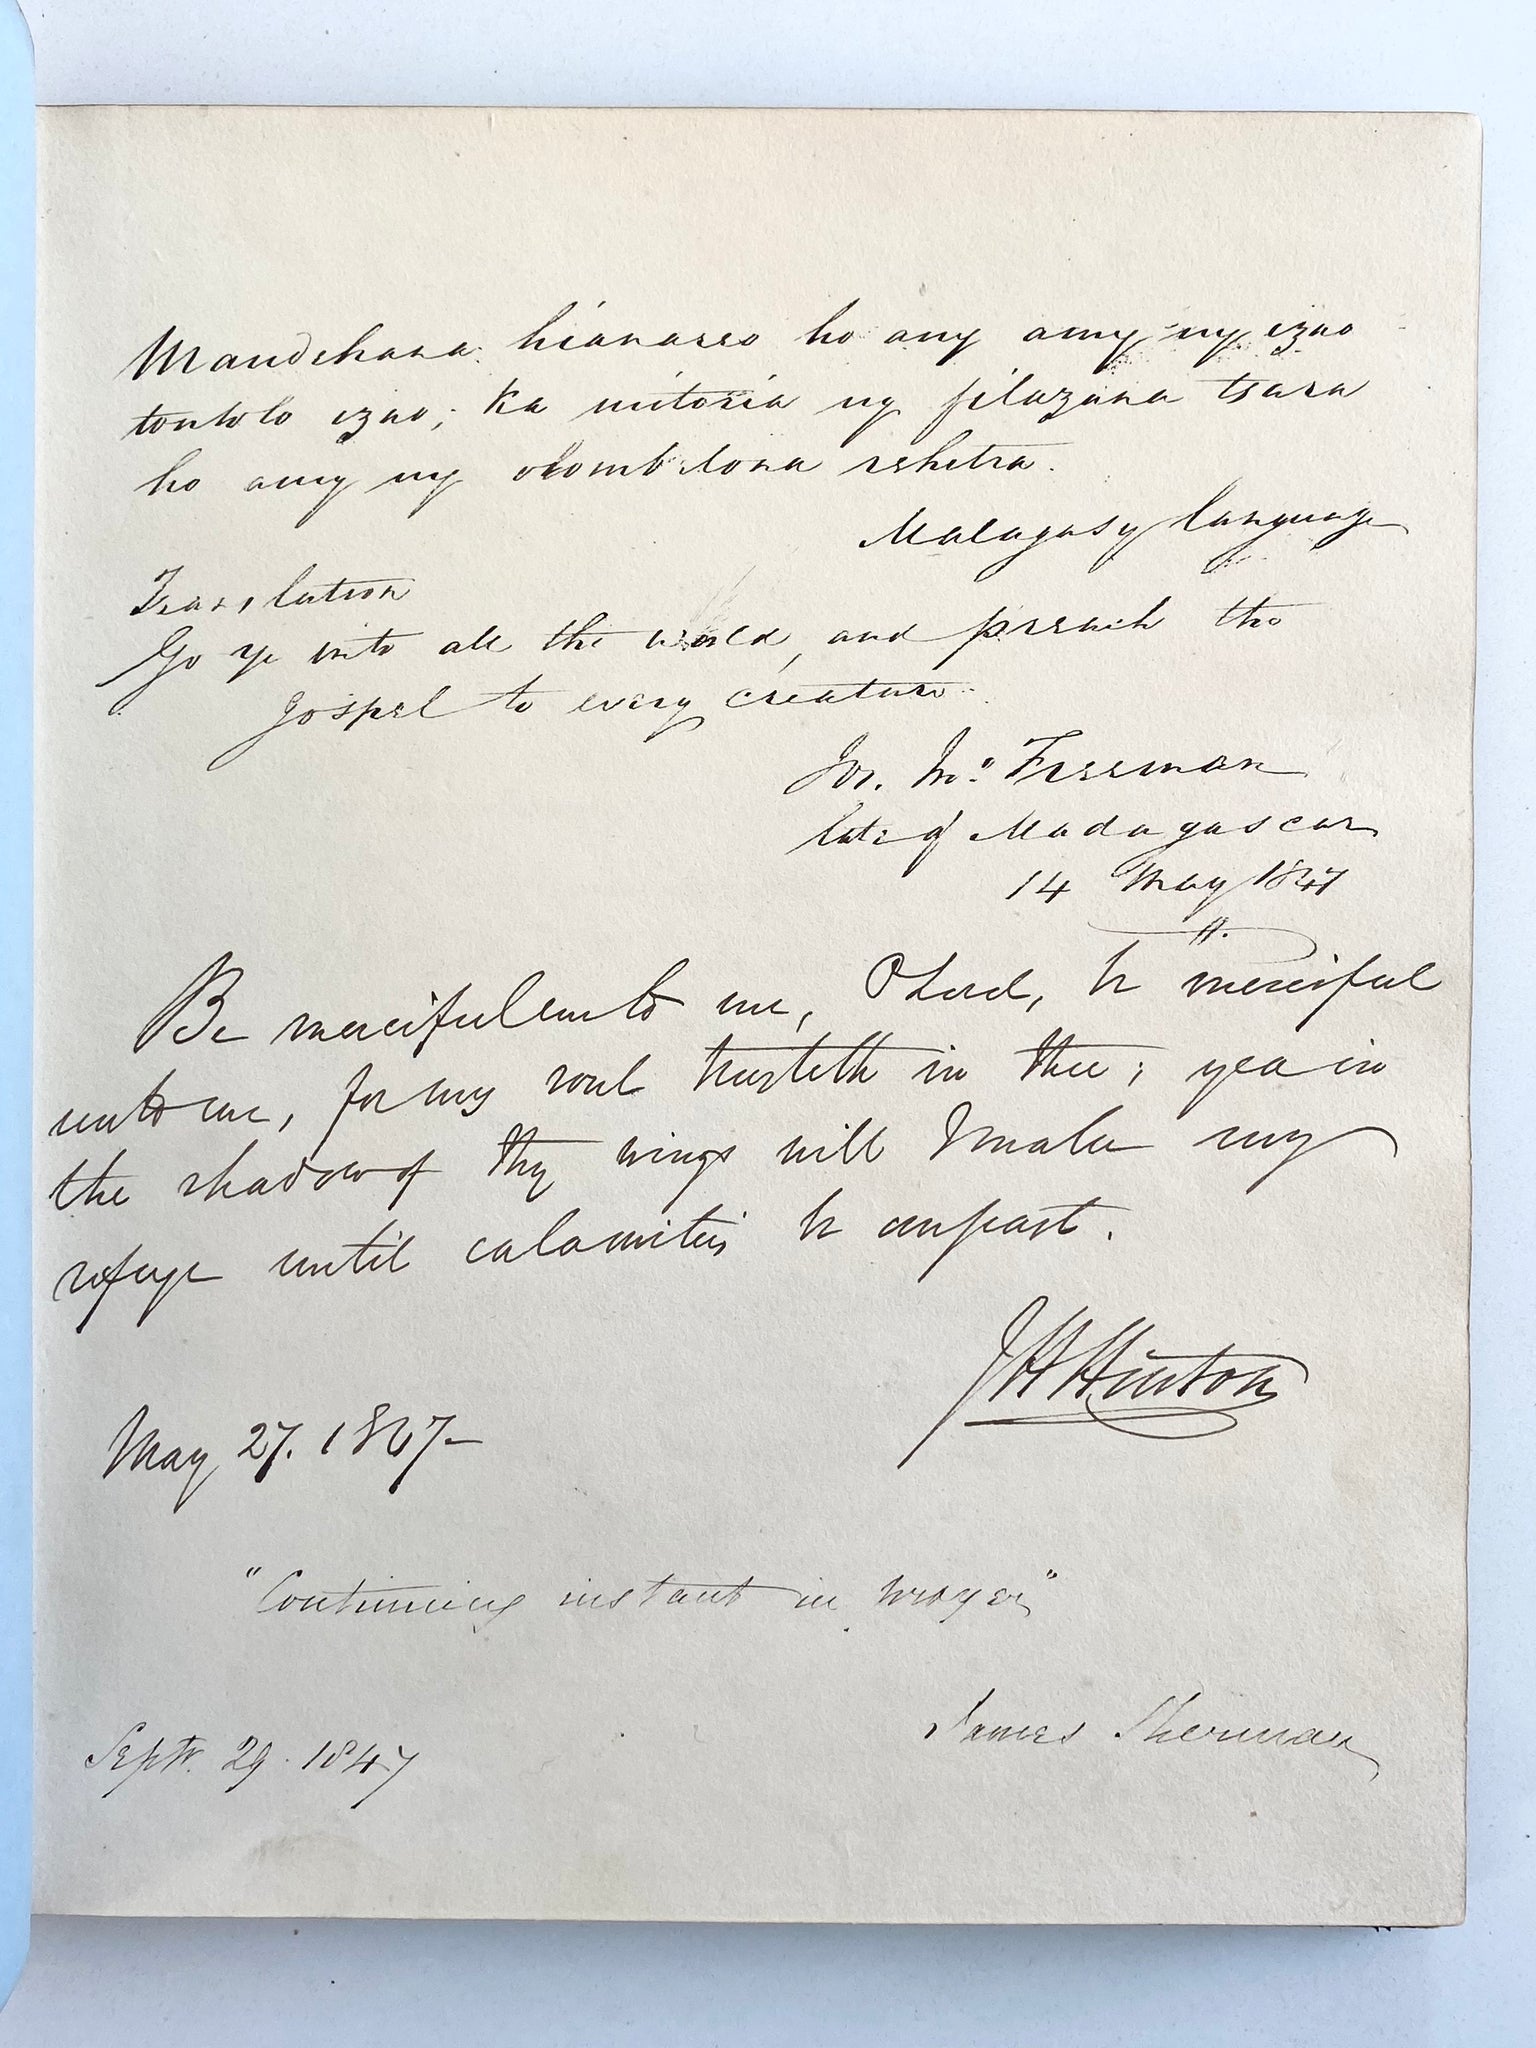 Mandehana hianareo ho any amy ny izao
tontolo izao; ka mitoria ny filazana tsara
ho amy ny olombelona rehetra.
Malagasy language
Translation
Go ye into all the world, and preach the
gospel to every creature.
Jos. Jno. Freeman
late of Madagascar
14 May 1847
Be merciful unto me, O Lord, be merciful
unto me, for my soul trusteth in thee; yea in
the shadow of thy wings will I make my
refuge until calamities be overpast.
J H Hinton
May 27. 1847-
"Continuing instant in prayer"
James Sherman
Septr. 29. 1847